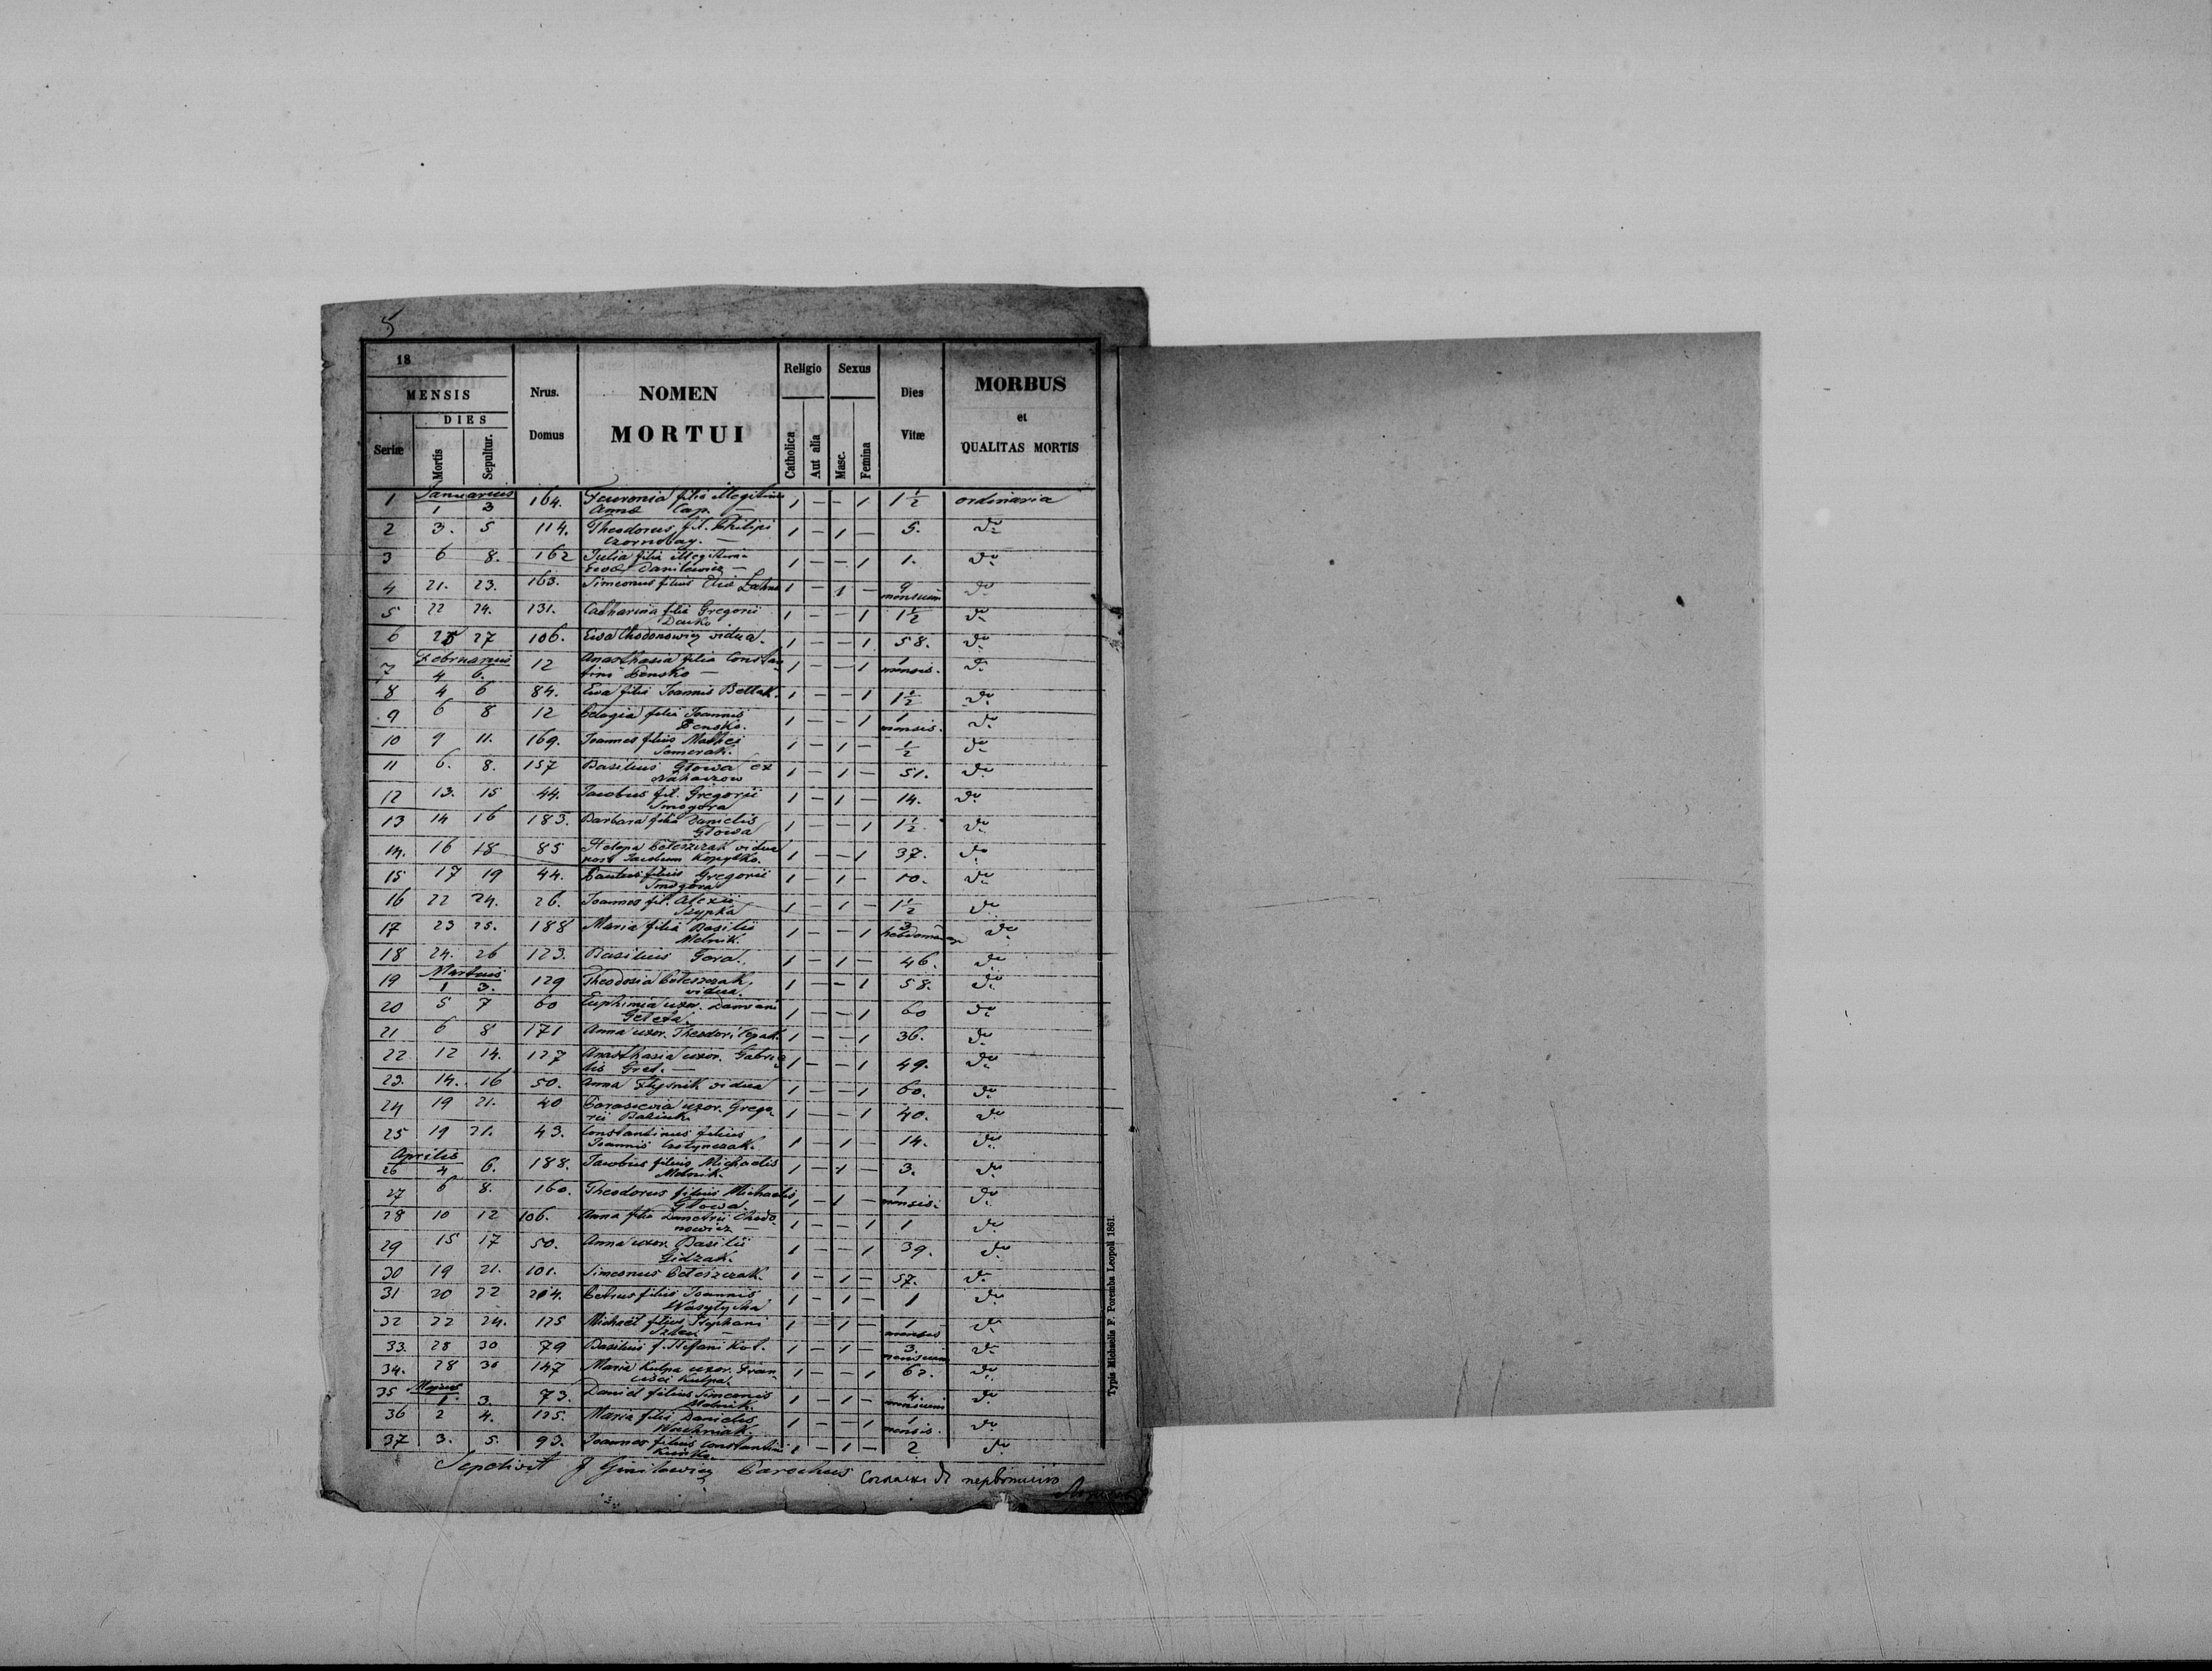 5
18
MENSIS
DIES
Seriæ
Mortis
Sepultur.
Nrus. Domus
NOMEN
MORTUI
Religio
Catholica
Aut alia
Sexus
Masc.
Femina
Dies Vitæ
MORBUS
et
QUALITAS MORTIS
Januarius
1 1 3 164. Fevronia filia illegitima 1 — — 1 1 1/2 ordinaria
Annæ Cap. —
2 3. 5 114. Theodorus fil. Philipi 1 — 1 — 5. do
Czornobay. —
3 6 8. 162 Julia filia illegitima 1 — — 1 1. do
Evæ Danilewicz —
4 21. 23. 163. Simeonus filius Eliæ 1 — 1 — 9 mensium do
5 22 24. 131. Catharina filia Gregorii 1 — — 1 1 1/2 do
Dacko
6 25 27 106. Ewa Chodonowicz vidua. 1 — — 1 58. do
Februarius
7 4 6. 12 Anasthasia filia Constan 1 — — 1 1 mensis. do
tini Pensko —
8 4 6 84. Ewa filia Joannis 1 — — 1 1 1/2 do
9 6 8 12 Pelagia filia Joannis 1 — — 1 1 mensis. do
Pensko.
10 9 11. 169. Joannes filius Mathei 1 — 1 — 1/2 do
Semerak.
11 6. 8. 157 Basilius Głowa ex 1 — 1 — 51. do
Nahaczow
12 13. 15 44. Jacobus fil. Gregorii 1 — 1 — 14. do
Smogora
13 14 16 183. Barbara filia Danielis 1 — — 1 1 1/2 do
Głowa
14. 16 18 85 Peleszczak vidua 1 — — 1 37. do
post Jacobum Kopytko.
15 17 19 44. Paulus filius Gregorii 1 — 1 — 10. do
Smogora
16 22 24. 26. Joannes fil. Alexii 1 — 1 — 1 1/2 do
Szypka
17 23 25. 188 Maria filia Basilii 1 — — 1 3 do
Melnik.
18 24. 26 123. Basilius Gora. 1 — 1 — 46. do
Martius
19 1 3. 129 Theodosia Peleszczak, 1 — — 1 58. do
vidua.
20 5 7 60 Euphimia uxor. Damiani 1 — — 1 60 do
Geleta.
21 6 8 171 Anna uxor. Theodori 1 — — 1 36. do
22 12 14. 127 Anasthasia uxor. Gabrie 1 — — 1 49. do
lis Gret. —
23. 14. 16 50. Anna vidua 1 — — 1 60. do
24 19 21. 40 Parascevia uxor. Grego 1 — — 1 40. do
rii
25 19 21. 43. Constantinus filius 1 — 1 — 14. do
Joannis
Aprilis
26 4 6. 188. Jacobus filius Michaelis 1 — 1 — 3. do
Melnik.
27 6 8. 160. Theodorus filius Michaelis 1 — 1 — 1 mensis. do
Głowa.
28 10 12 106. Anna filia Dmetrii Chodo 1 — — 1 1 do
nowicz —
29 15 17 50. Anna uxor. Basilii 1 — — 1 39. do
Gidzak.
30 19 21. 101. Simeonus Peleszczak. 1 — 1 — 57. do
31 20 22 204. Petrus filius Joannis 1 — 1 — 1 do
Wasylycha
32 22 24. 125 Michael filius Stephani 1 — 1 — 1 mensis do
33. 28 30 79 Basilius f. Stefani Kot. 1 — 1 — 3. mensium do
34. 28 30 147 Maria Kulpa uxor. Fran 1 — — 1 62. do
cisci Kulpa.
Majus
35 1. 3. 73. Daniel filius Simeonis 1 — 1 — 4. mensium do
Melnik.
36 2 4. 125. Maria filia Danielis 1 — — 1 1 mensis. do
Wachniak.
37 3. 5. 93. Joannes filius Constantini 1 — 1 — 2 do
Sepelivit J Ginilewicz Parochus
Typis Michaelis F. Poremba Leopoli 1861.